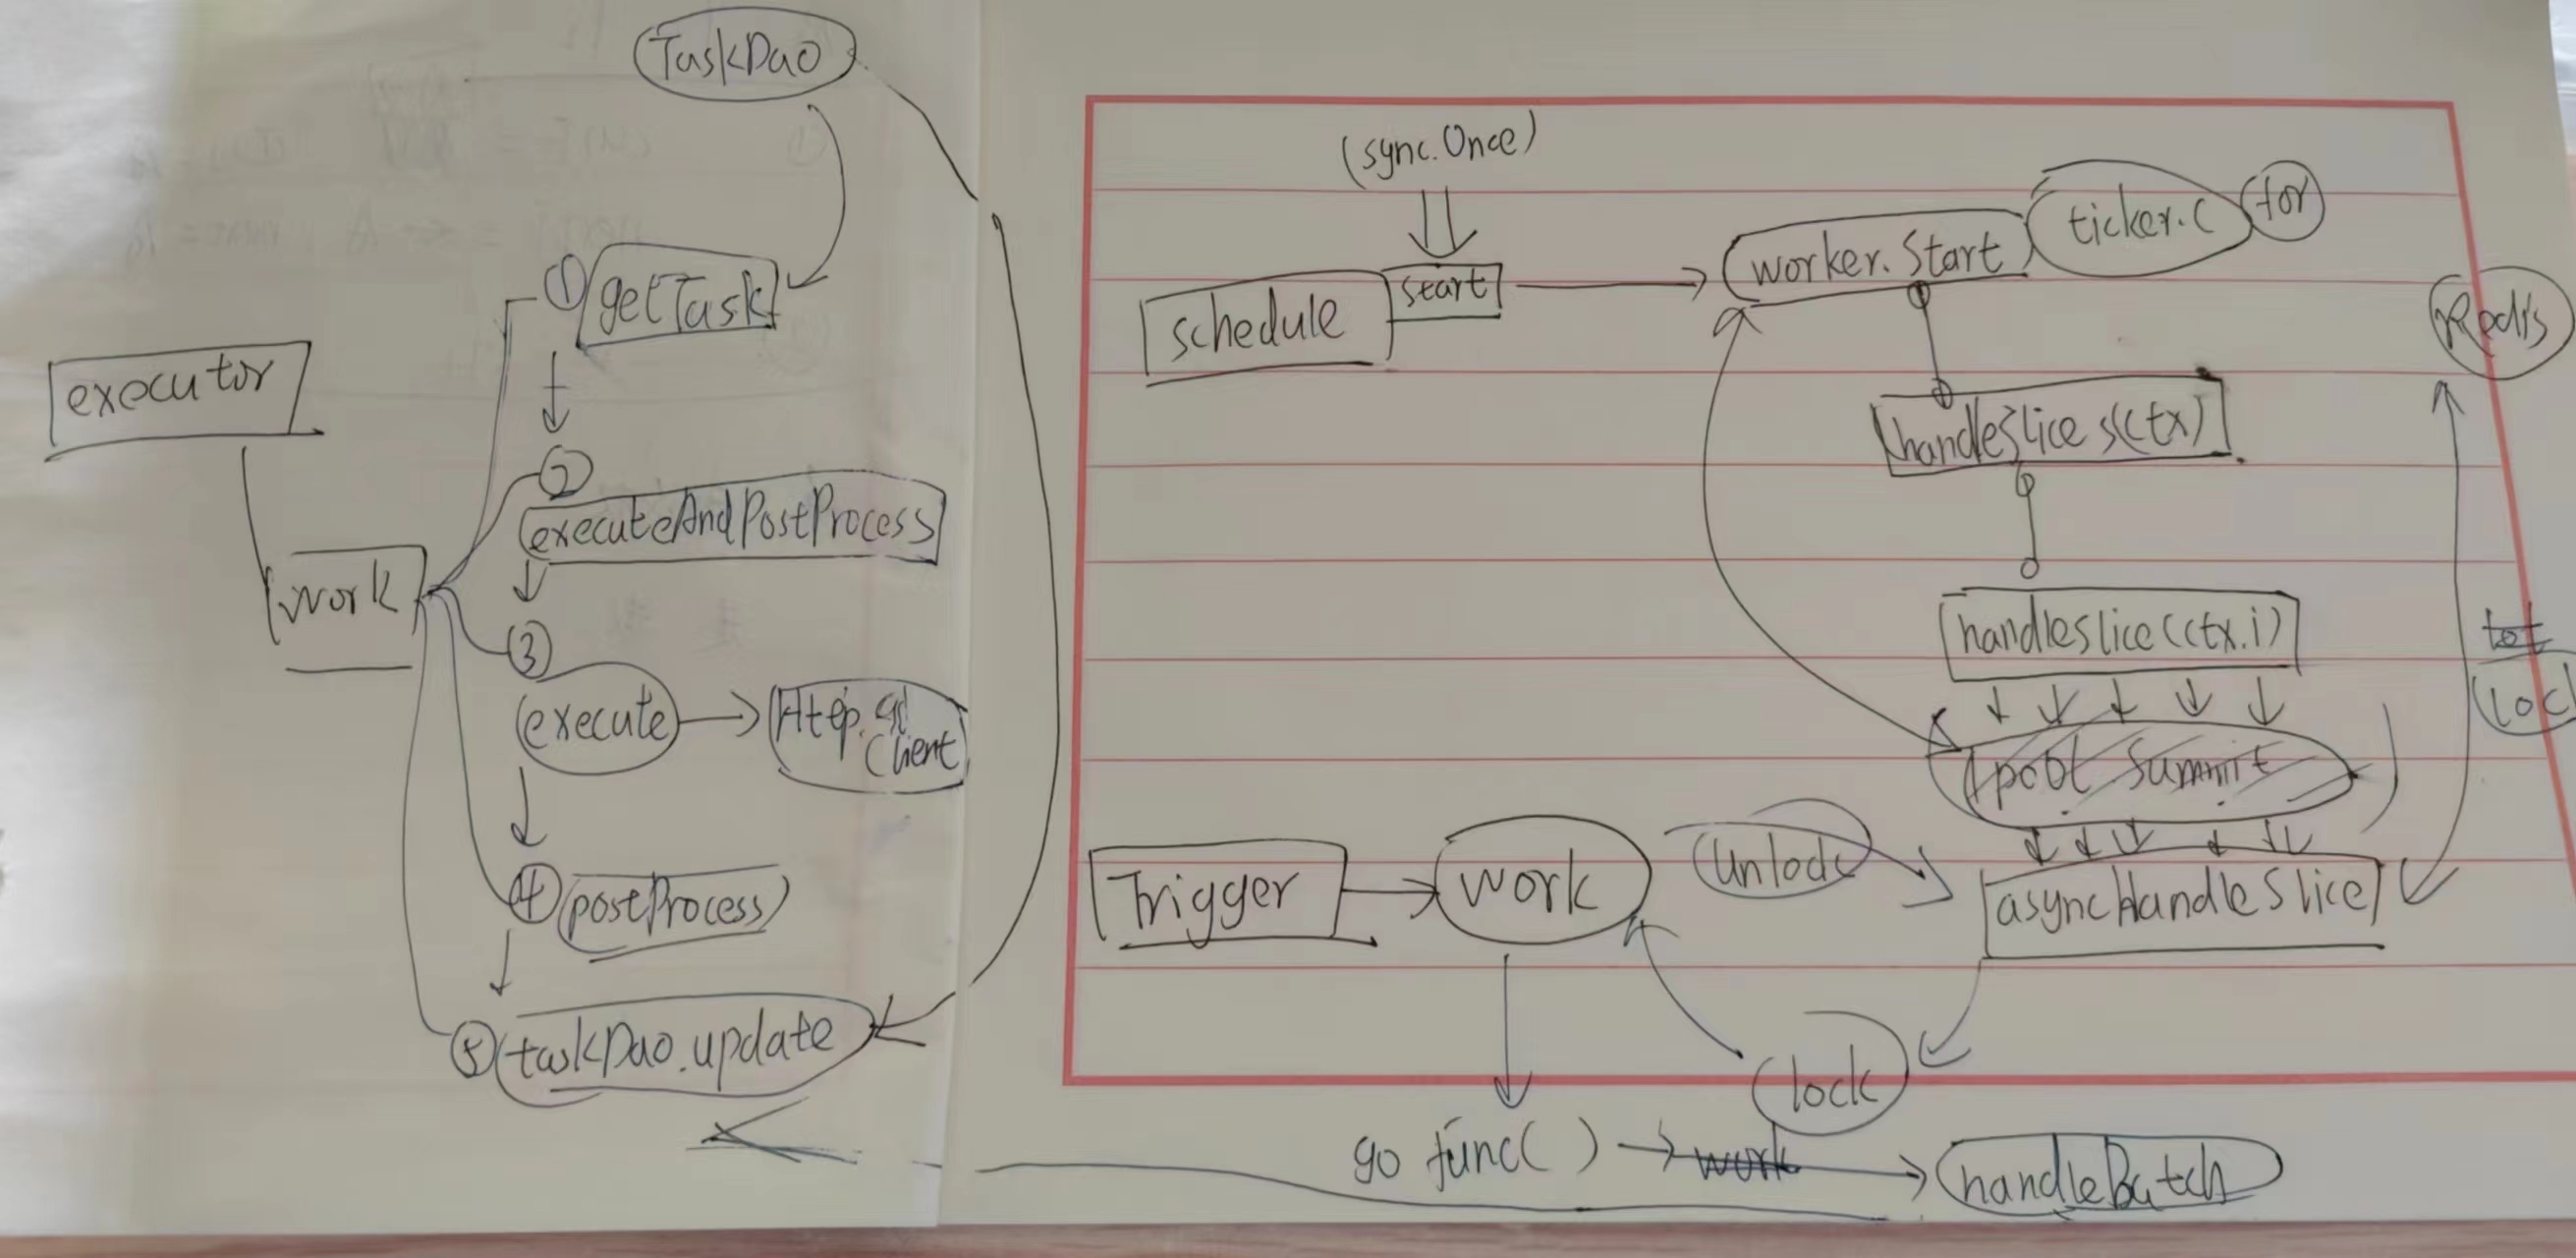 TaskDao
① getTask
executor
②
executeAndPostProcess
work
③
execute
Http.
Client
④ postProcess
⑤ taskDao.update
(sync.Once)
schedule
start
worker.Start
ticker.C
for
Redis
handleSlices(ctx)
handleslice(ctx.i)
tot
loc
pool Summit
Trigger
work
Unlock
asyncHandleSlice
lock
go func()
work
handleBatch